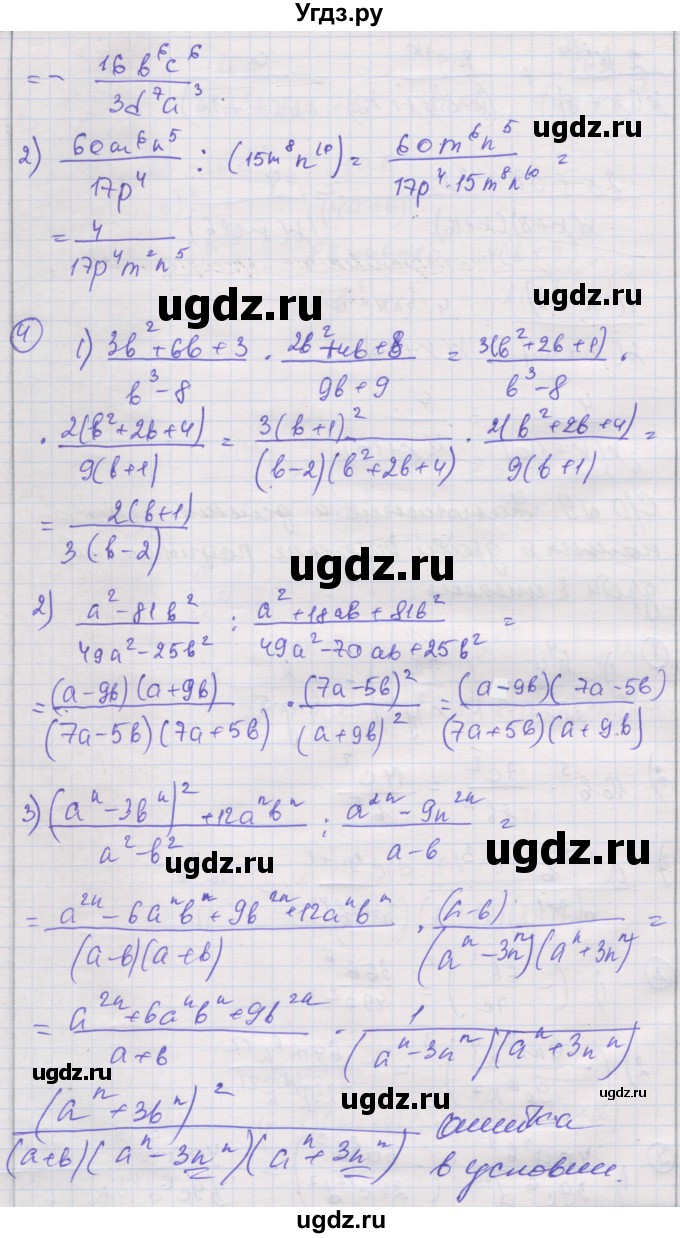 Угдз.ру
= - 16 b⁶ c⁶ / 3d⁷ a³
ugdz.ru
2) 60m⁶n⁵ / 17p⁴ : (15m⁸n¹⁰) = 60m⁶n⁵ / 17p⁴·15m⁸n¹⁰ =
= 4 / 17p⁴m²n⁵
ugdz.ru
ugdz.ru
4 1) 3b²+6b+3 / b³-8 · 2b²+4b+8 / 9b+9 = 3(b²+2b+1) / b³-8 ·
· 2(b²+2b+4) / 9(b+1) = 3(b+1)² / (b-2)(b²+2b+4) · 2(b²+2b+4) / 9(b+1) =
= 2(b+1) / 3(b-2)
ugdz.ru
2) a²-81b² / 49a²-25b² : a²+18ab+81b² / 49a²-70ab+25b² =
= (a-9b)(a+9b) / (7a-5b)(7a+5b) · (7a-5b)² / (a+9b)² = (a-9b)(7a-5b) / (7a+5b)(a+9b)
ugdz.ru
3) (aⁿ-3bⁿ)²+12aⁿbⁿ / a²-b² : a²ⁿ-9n²ⁿ / a-b =
ugdz.ru
ugdz.ru
= a²ⁿ-6aⁿbⁿ+9b²ⁿ+12aⁿbⁿ / (a-b)(a+b) · (a-b) / (aⁿ-3nⁿ)(aⁿ+3nⁿ) =
= a²ⁿ+6aⁿbⁿ+9b²ⁿ / a+b · 1 / (aⁿ-3nⁿ)(aⁿ+3nⁿ)
ugdz.ru
ugdz.ru
(aⁿ+3bⁿ)² / (a+b)(aⁿ-3nⁿ)(aⁿ+3nⁿ) ошибка
в условии.
ugdz.ru